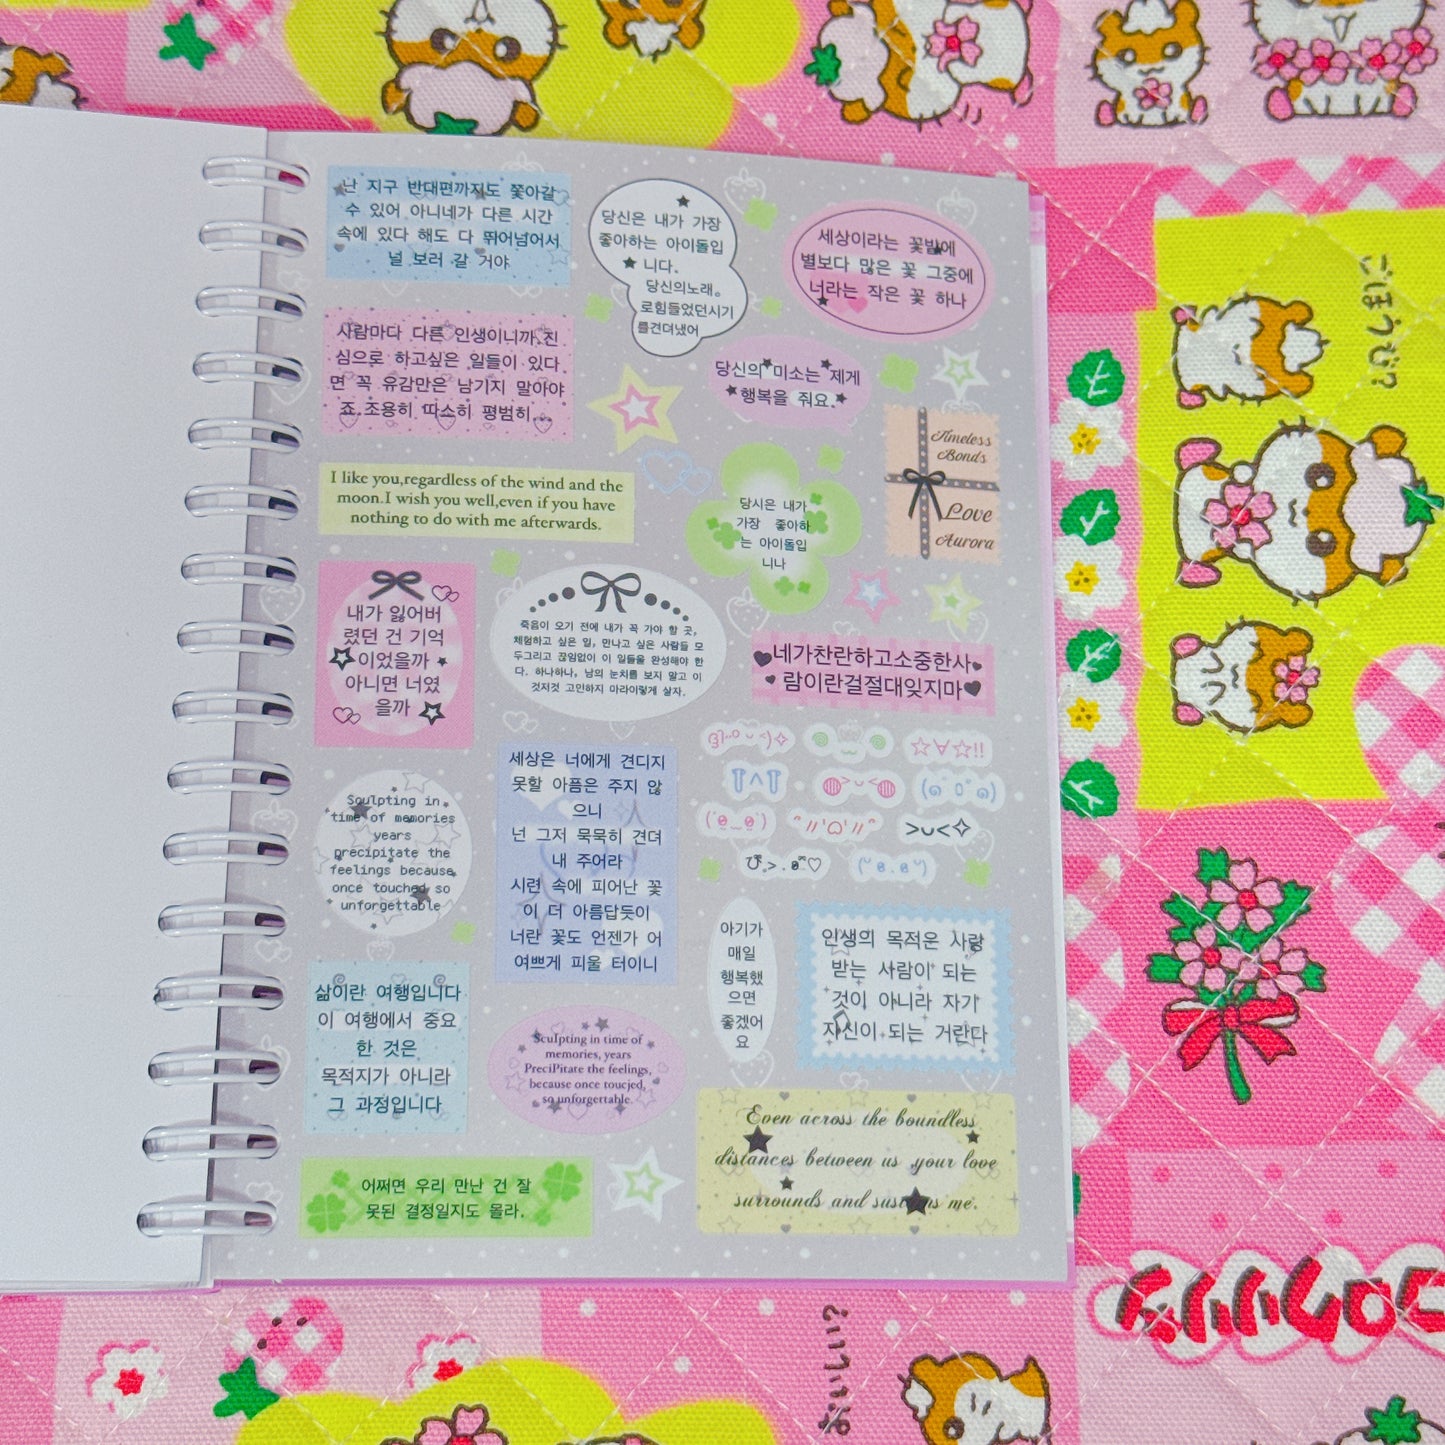 난 지구 반대편까지도 쫓아갈
수 있어 아니네가 다른 시간
속에 있다 해도 다 뛰어넘어서
널 보러 갈 거야
당신은 내가 가장
좋아하는 아이돌입
니다.
당신의노래。
로힘들었던시기
를견뎌냈어
세상이라는 꽃밭에
별보다 많은 꽃 그중에
너라는 작은 꽃 하나
사람마다 다른 인생이니까,진
심으로 하고싶은 일들이 있다
면 꼭 유감만은 남기지 말아야
죠.조용히 따스히 평범히..
당신의 미소는 제게
행복을 줘요.
Timeless
Bonds
Love
Aurora
I like you,regardless of the wind and the
moon.I wish you well,even if you have
nothing to do with me afterwards.
당시은 내가
가장 좋아하
는 아이돌입
니나
내가 잃어버
렸던 건 기억
이었을까
아니면 너였
을까
죽음이 오기 전에 내가 꼭 가야 할 곳,
체험하고 싶은 일, 만나고 싶은 사람들 모
두그리고 끊임없이 이 일들울 완성해야 한
다. 하나하나, 남의 눈치를 보지 말고 이
것저것 고민하지 마라이렇게 살자.
네가찬란하고소중한사
람이란걸절대잊지마
세상은 너에게 견디지
못할 아픔은 주지 않
으니
넌 그저 묵묵히 견뎌
내 주어라
시련 속에 피어난 꽃
이 더 아름답듯이
너란 꽃도 언젠가 어
여쁘게 피울 터이니
☆∀☆!!
>ᴗ<✧
Sculpting in
time of memories
years
precipitate the
feelings because
once touched so
unforgettable
아기가
매일
행복했
으면
좋겠어
요
인생의 목적은 사랑
받는 사람이 되는
것이 아니라 자기
자신이 되는 거란다
삶이란 여행입니다
이 여행에서 중요
한 것은
목적지가 아니라
그 과정입니다
Sculpting in time of
memories, years
PreciPitate the feelings,
because once toucjed,
so unforgettable.
Even across the boundless
distances between us ,your love
surrounds and sustains me.
어쩌면 우리 만난 건 잘
못된 결정일지도 몰라.
ごほうび?